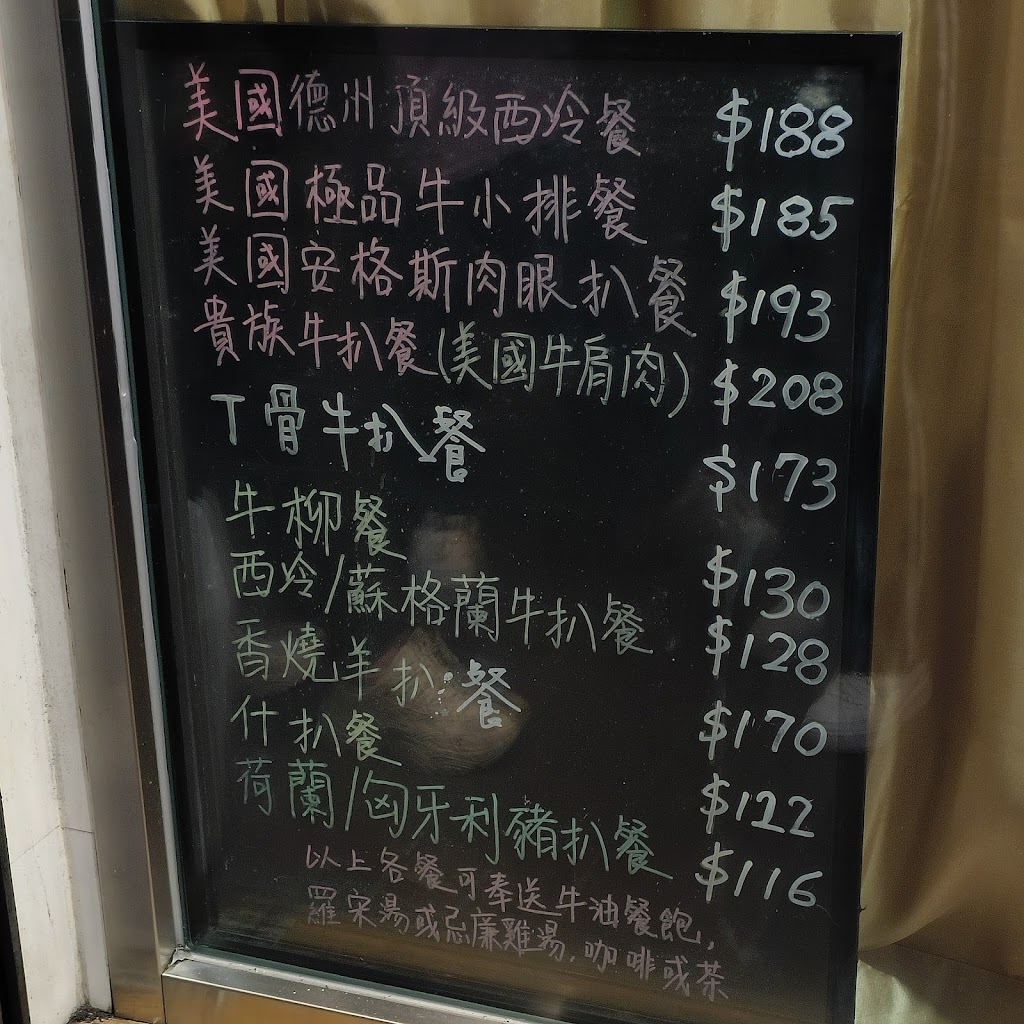 美國德洲頂級西冷餐 $188
美國極品牛小排餐 $185
美國安格斯肉眼扒餐 $193
貴族牛扒餐(美國牛肩肉) $208
T骨牛扒餐 $173
牛柳餐 $130
西冷/蘇格蘭牛扒餐 $128
香燒羊扒餐 $170
什扒餐 $122
荷蘭/匈牙利豬扒餐 $116
以上各餐可奉送牛油餐飽,
羅宋湯或忌廉雞湯,咖啡或茶